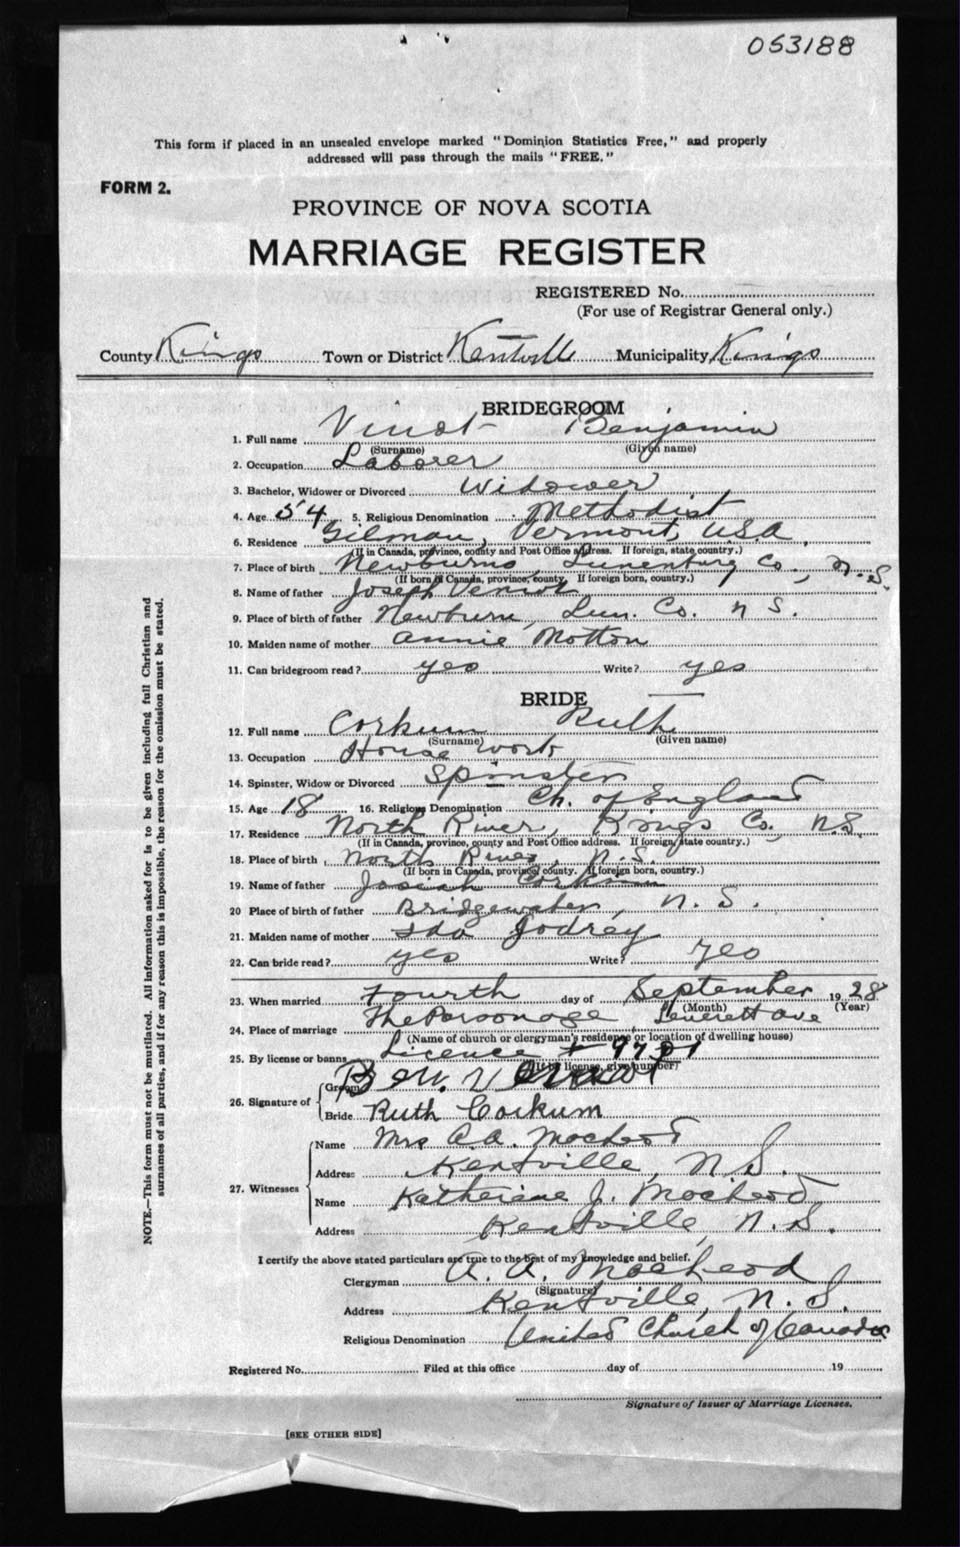 053188
This form if placed in an unsealed envelope marked "Dominion Statistics Free," and properly
addressed will pass through the mails "FREE."
FORM 2.
PROVINCE OF NOVA SCOTIA
MARRIAGE REGISTER
REGISTERED No.
(For use of Registrar General only.)
County Kings Town or District Kentville Municipality Kings
BRIDEGROOM
1. Full name Vinot Benjamin
(Surname) (Given name)
2. Occupation Laborer
3. Bachelor, Widower or Divorced Widower
4. Age 54 5. Religious Denomination Methodist
6. Residence Gilman, Vermont, USA.
(If in Canada, province, county and Post Office address. If foreign, state country.)
7. Place of birth Newburns, Lunenburg Co., N.S.
(If born in Canada, province, county. If foreign born, country.)
8. Name of father Joseph Veniot
9. Place of birth of father Newburn, Lun. Co. N S.
10. Maiden name of mother Annie Motton
11. Can bridegroom read? yes Write? yes
BRIDE
12. Full name Corkum Ruth
(Surname) (Given name)
13. Occupation House work
14. Spinster, Widow or Divorced Spinster
15. Age 18 16. Religious Denomination Ch. of England
17. Residence North River, Kings Co., N.S.
(If in Canada, province, county and Post Office address. If foreign, state country.)
18. Place of birth North River, N.S.
(If born in Canada, province, county. If foreign born, country.)
19. Name of father Josiah Corkum
20 Place of birth of father Bridgewater, N.S.
21. Maiden name of mother Ida Jodrey
22. Can bride read? yes Write? yes
23. When married Fourth day of September 1928
(Month) (Year)
24. Place of marriage The Parsonage Leverett Ave
(Name of church or clergyman's residence or location of dwelling house)
25. By license or banns Licence
(If by license, give number)
26. Signature of Groom Ben.
Bride Ruth Corkum
27. Witnesses Name Mrs A.A. MacLeod
Address Kentville, N.S.
Name Katherine J. MacLeod
Address Kentville, N.S.
I certify the above stated particulars are true to the best of my knowledge and belief.
Clergyman A. A. MacLeod
(Signature)
Address Kentville, N.S.
Religious Denomination United Church of Canada
Registered No. Filed at this office day of 19
Signature of Issuer of Marriage Licenses.
[SEE OTHER SIDE]
NOTE.—This form must not be mutilated. All information asked for is to be given including full Christian and
surnames of all parties, and if for any reason this is impossible, the reason for the omission must be stated.